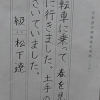 転車に乗って 春を
に行きました。土手の
さいていました。
級 松下達